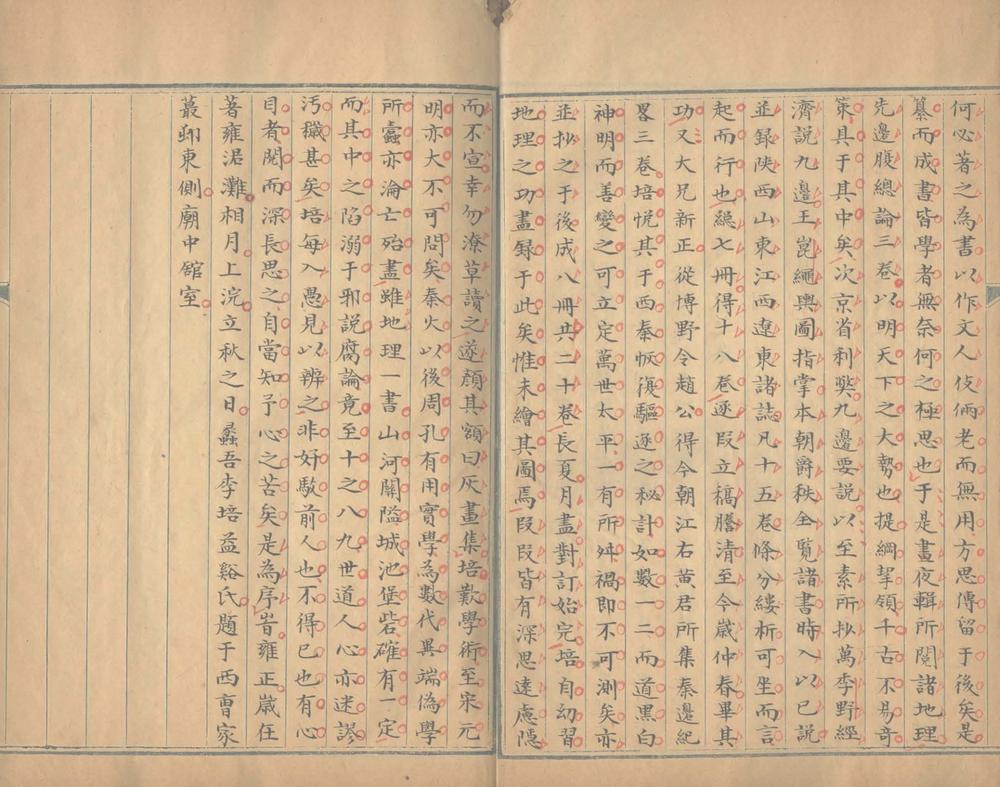 何必著之為書以作文人伎倆老而無用方思傳留于後矣是
纂而成書皆學者無奈何之極思也于是晝夜輯所閱諸地理
先邊腹總論三卷以明天下之大勢也提綱挈領千古不易奇
策具于其中矣次京省利獘九邊要說以至素所抄萬季野經
濟說九邊王崑繩輿圖指掌本朝爵秩全覧諸書時入以已說
並録陝西山東江西遼東諸誌凡十五卷條分縷析可坐而言
起而行也緫七冊得十八卷逐叚立稿謄清至今歲仲春畢其
功又大兄新正從博野令趙公得令朝江右黄君所集秦邊紀
畧三卷培悦其于西秦恢復驅逐之秘計如數一二而道黒白
神明而善變之可立定萬世太平一有所舛禍即不可測矣亦
並抄之于後成八冊共二十卷長夏月盡對訂始完培自幼習
地理之功畫録于此矣惟未繪其圖焉叚叚皆有深思遠慮隱
而不宣幸勿潦草讀之遂顔其額曰灰畫集培歎學術至宋元
明亦大不可問矣秦火以後周孔有用實學為數代異端偽學
所蠹亦淪亡殆盡雖地理一書山河關隘城池堡砦確有一定
而其中之陷溺于邪説腐論竟至十之八九世道人心亦迷謬
汚穢甚矣培每入愚見以辨之非好駁前人也不得已也有心
目者閱而深長思之自當知予心之苦矣是為序旹雍正歲在
著雍涒灘相月上浣立秋之日蠡吾李培益谿氏題于西曹家
蕞邜東側廟中舘室